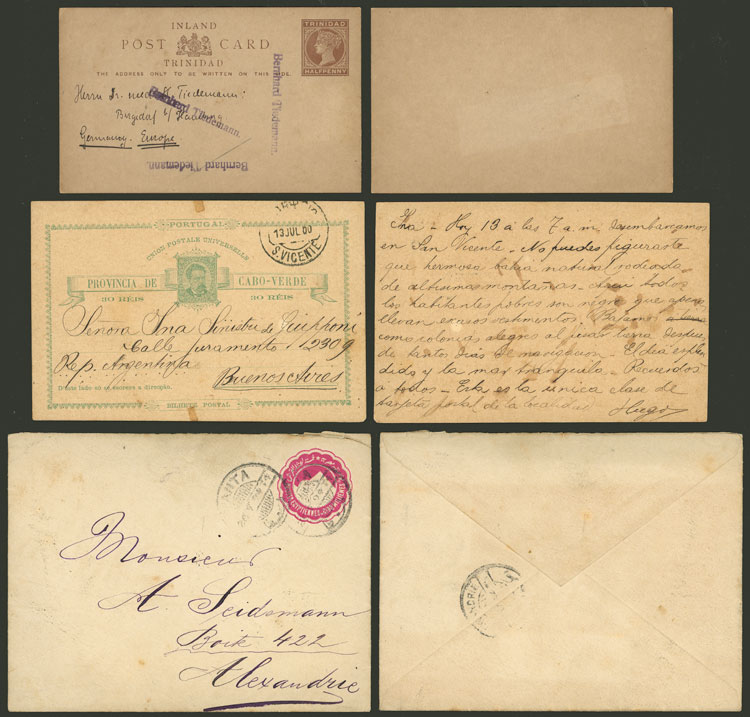 INLAND
POST CARD
TRINIDAD
THE ADDRESS ONLY TO BE WRITTEN ON THIS SIDE.
TRINIDAD
HALFPENNY
Herrn Dr. med. H. Tiedemann
Bergedorf b/ Hamburg
Germany. Europe
Bernhard Tiedemann.
Bernhard Tiedemann.
Bernhard Tiedemann.
PORTUGAL
UNION POSTALE UNIVERSELLE
PROVINCIA DE CABO-VERDE
30 RÉIS 30 RÉIS
13 JUL 00
S. VICENTE
Senora Ina Sinistri de
Calle Juramento 12309
Rep. Argentina
Buenos Aires
D'este lado só se escreve a direcção.
BILHETE POSTAL
Ina - Hoy 13 a las 7 a.m. desembarcamos
en San Vicente - No puedes figurarte
que hermosa bahia natural rodeada
de altisimas montañas - casi todos
los habitantes pobres son negros que apenas
llevan escasos vestimentos.
como colonias alegres al pisar tierra despues
de tantos dias de navegacion. El dia esplen
dido y la mar tranquila - Recuerdos
a todos - Esta es la unica clase de
tarjeta postal de la localidad
Hugo
EGYPTIENNES
Monsieur
A. Seidemann
Boite 422
Alexandrie